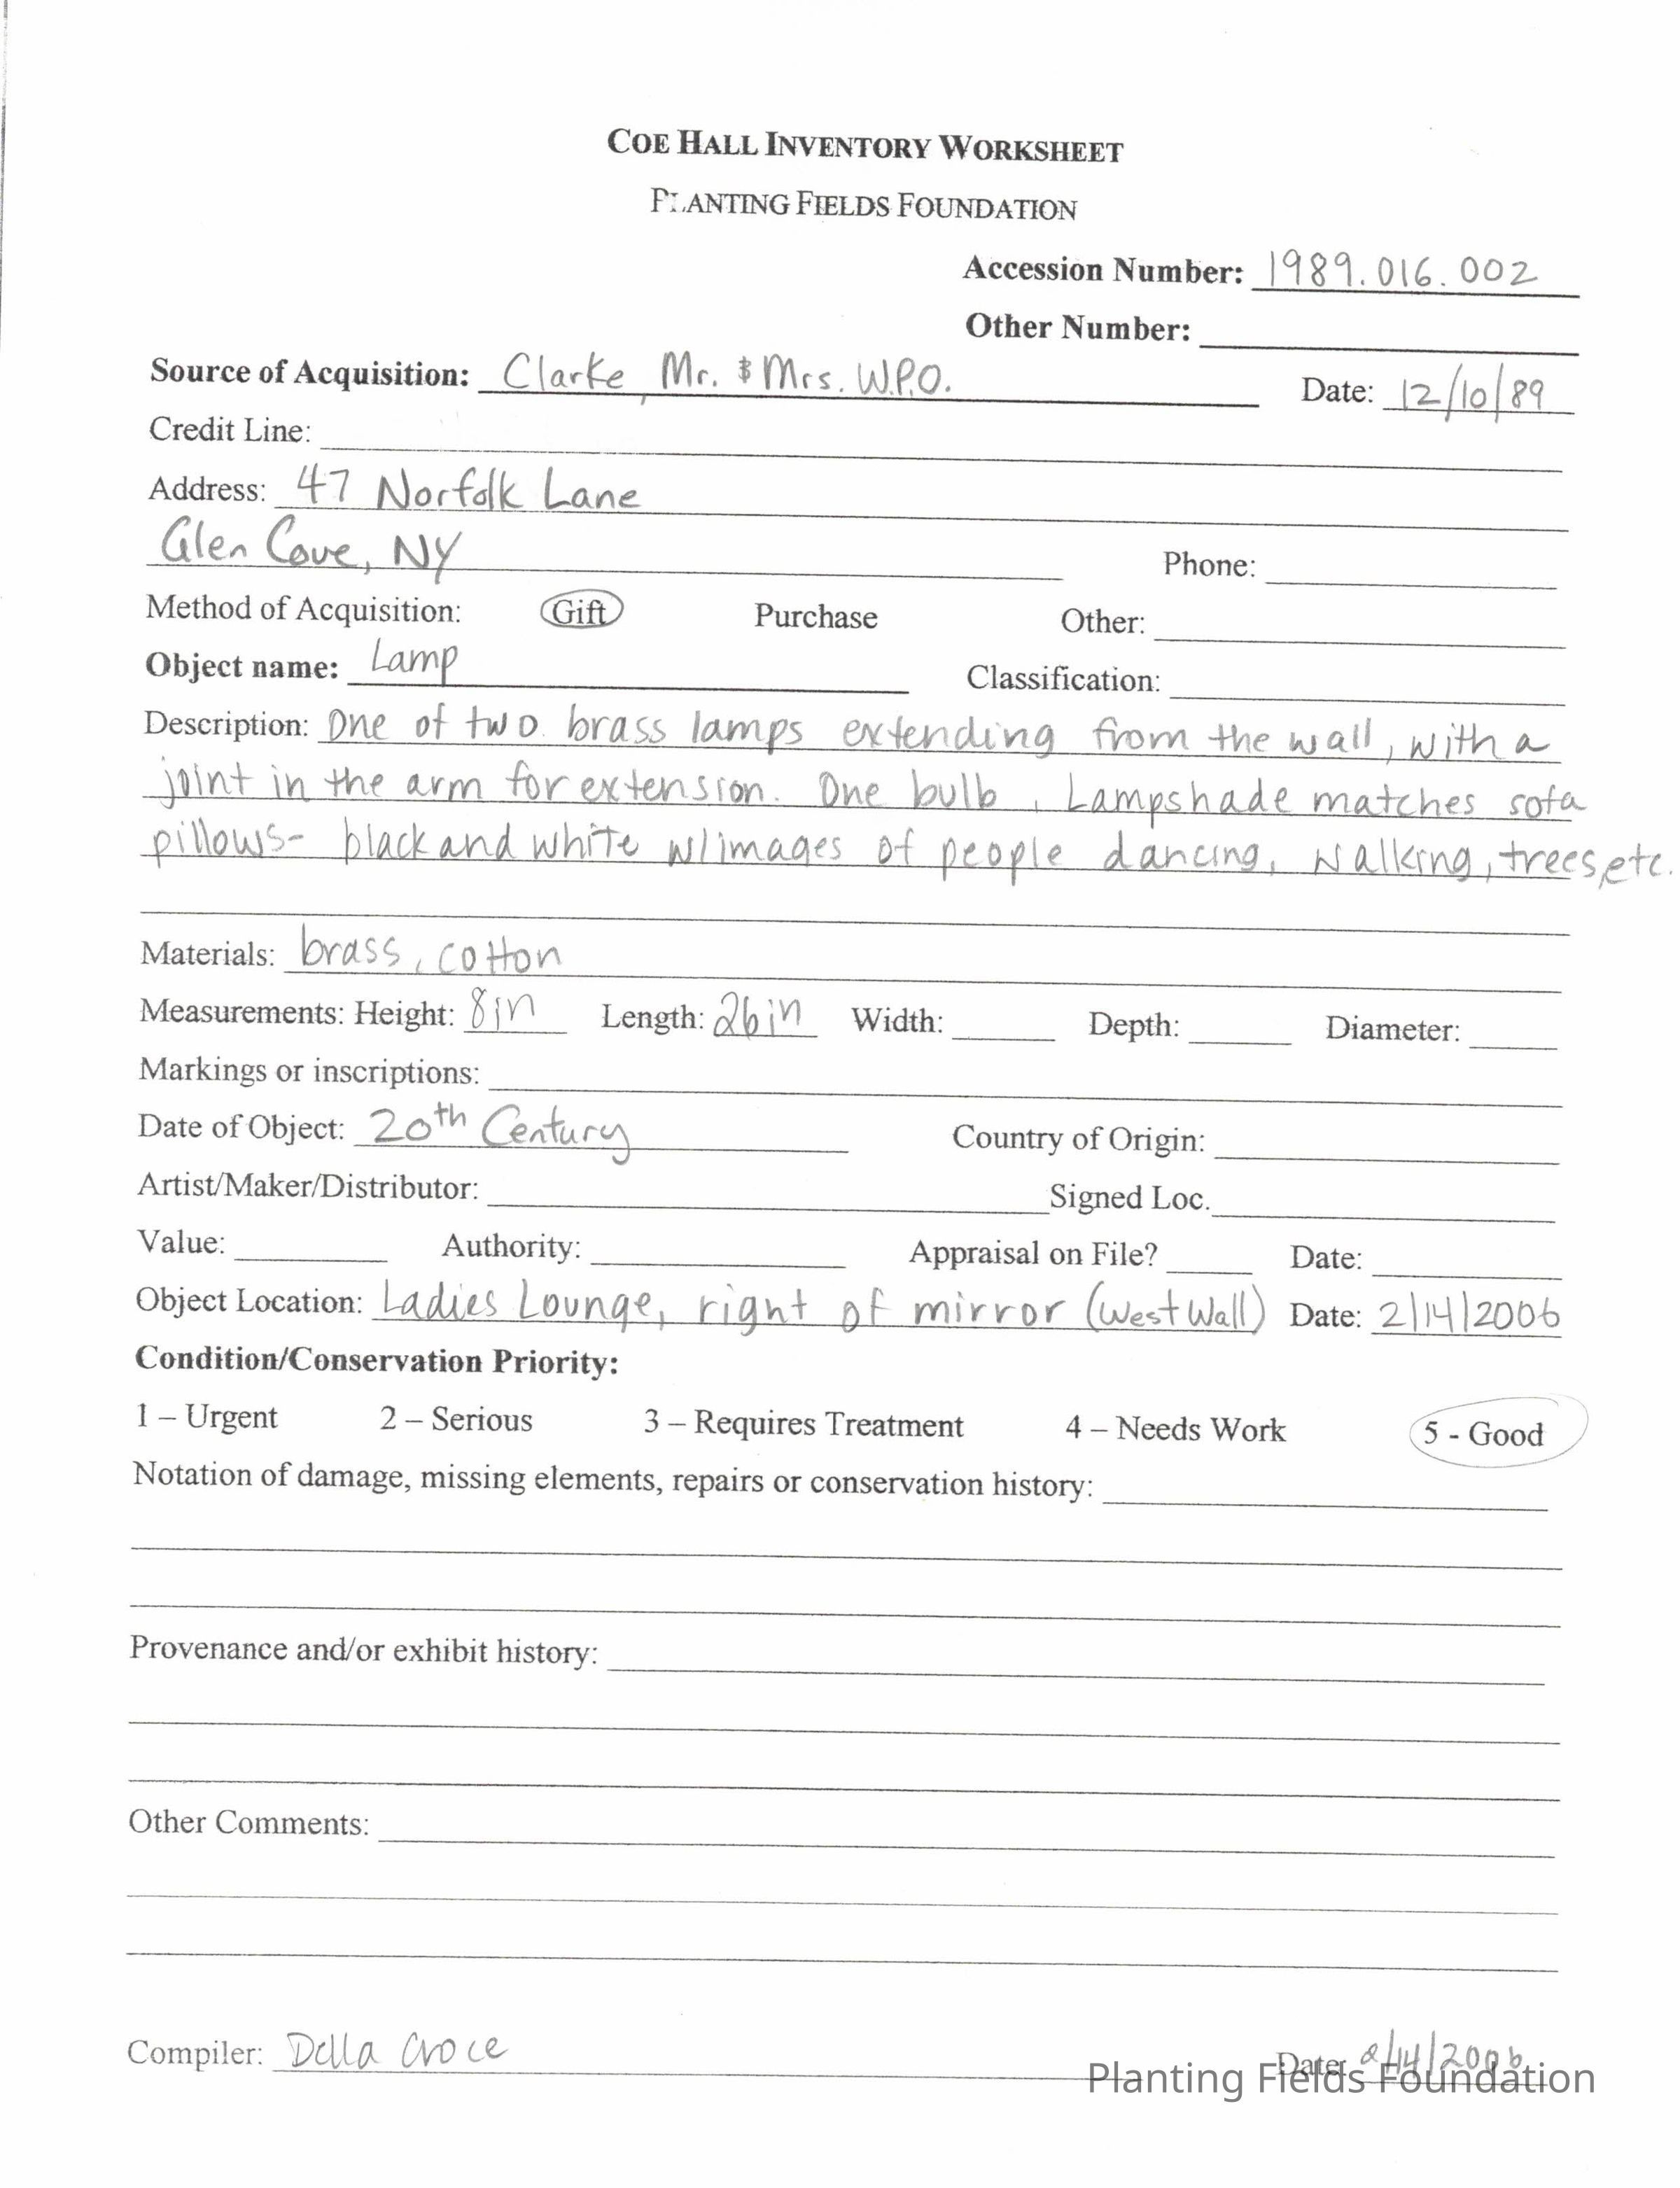 COE HALL INVENTORY WORKSHEET
PLANTING FIELDS FOUNDATION
Accession Number: 1989.016.002
Other Number:
Source of Acquisition: Clarke, Mr. & Mrs. W.P.O. Date: 12/10/89
Credit Line:
Address: 47 Norfolk Lane
Glen Cove, NY Phone:
Method of Acquisition: Gift Purchase Other:
Object name: Lamp Classification:
Description: One of two brass lamps extending from the wall, with a
joint in the arm for extension. One bulb, Lampshade matches sofa
pillows- black and white w/images of people dancing, walking, trees, etc.
Materials: brass, cotton
Measurements: Height: 8in Length: 26in Width: Depth: Diameter:
Markings or inscriptions:
Date of Object: 20th Century Country of Origin:
Artist/Maker/Distributor: Signed Loc.
Value: Authority: Appraisal on File? Date:
Object Location: Ladies Lounge, right of mirror (West Wall) Date: 2/14/2006
Condition/Conservation Priority:
1 – Urgent 2 – Serious 3 – Requires Treatment 4 – Needs Work 5 - Good
Notation of damage, missing elements, repairs or conservation history:
Provenance and/or exhibit history:
Other Comments:
Compiler: Della Croce Date: 2/14/2006
Planting Fields Foundation